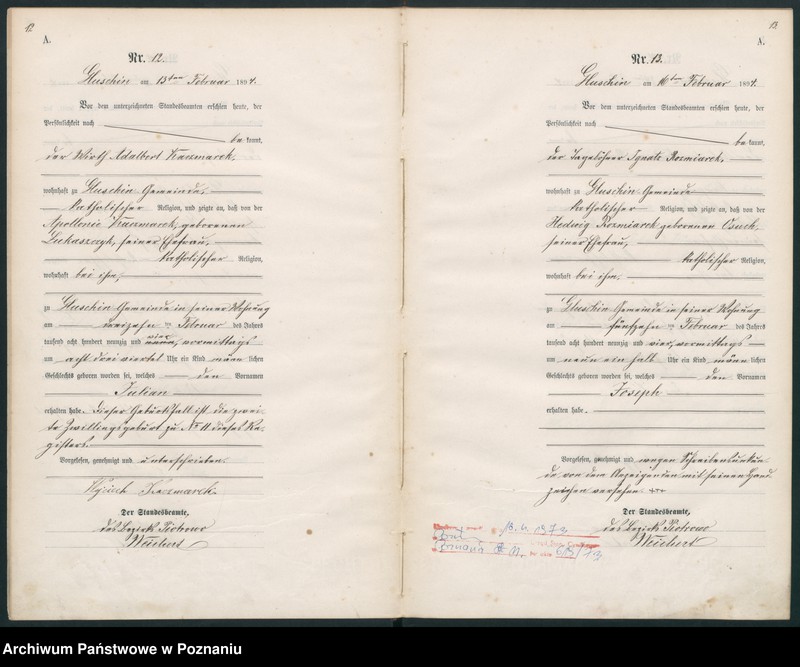 12
A.
Nr. 12.
Gluschin am 13ten Februar 1894.
Vor dem unterzeichneten Standesbeamten erschien heute, der
Persönlichkeit nach
be kannt,
der Wirth Adalbert Kaczmarek,
wohnhaft zu Gluschin Gemeinde,
katholischer Religion, und zeigte an, daß von der
Apollonie Kaczmarek, geborenen
Lukaszczyk, seiner Ehefrau,
katholischer Religion,
wohnhaft bei ihm,
zu Gluschin Gemeinde in seiner Wohnung
am dreizehn ten Februar des Jahres
tausend acht hundert neunzig und vier, vormittags
um acht drei viertel Uhr ein Kind männ lichen
Geschlechts geboren worden sei, welches den Vornamen
Julian
erhalten habe. Dieser Geburtsfall ist die zwei-
te Zwillingsgeburt zu No 11 dieses Re-
gisters.
Vorgelesen, genehmigt und unterschrieben.
Wojciech Kaczmarek.
Der Standesbeamte,
des Bezirks Piotrowo
Weichert
13.
A.
Nr. 13.
Gluschin am 16ten Februar 1894.
Vor dem unterzeichneten Standesbeamten erschien heute, der
Persönlichkeit nach
be kannt,
der Tagelöhner Ignatz Rozmiarek,
wohnhaft zu Gluschin Gemeinde
katholischer Religion, und zeigte an, daß von der
Hedwig Rozmiarek geborenen Osuch,
seiner Ehefrau,
katholischer Religion,
wohnhaft bei ihm.
zu Gluschin Gemeinde in seiner Wohnung
am fünfzehn ten Februar des Jahres
tausend acht hundert neunzig und vier, vormittags
um neun ein halb Uhr ein Kind männ lichen
Geschlechts geboren worden sei, welches den Vornamen
Joseph
erhalten habe.
Vorgelesen, genehmigt und wegen Schreibensunkun-
de von dem Anzeigenden mit seinen Hand-
zeichen versehen +++
Der Standesbeamte,
des Bezirks Piotrowo
Weichert
Archiwum Państwowe w Poznaniu